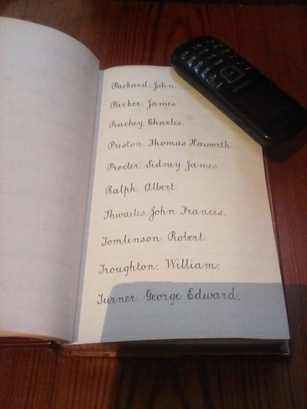 Packard, John.
Parker, James.
Peachey, Charles.
Preston, Thomas Haworth.
Procter, Sidney James.
Ralph, Albert.
Thwaites, John Francis.
Tomlinson, Robert.
Troughton, William.
Turner, George Edward.